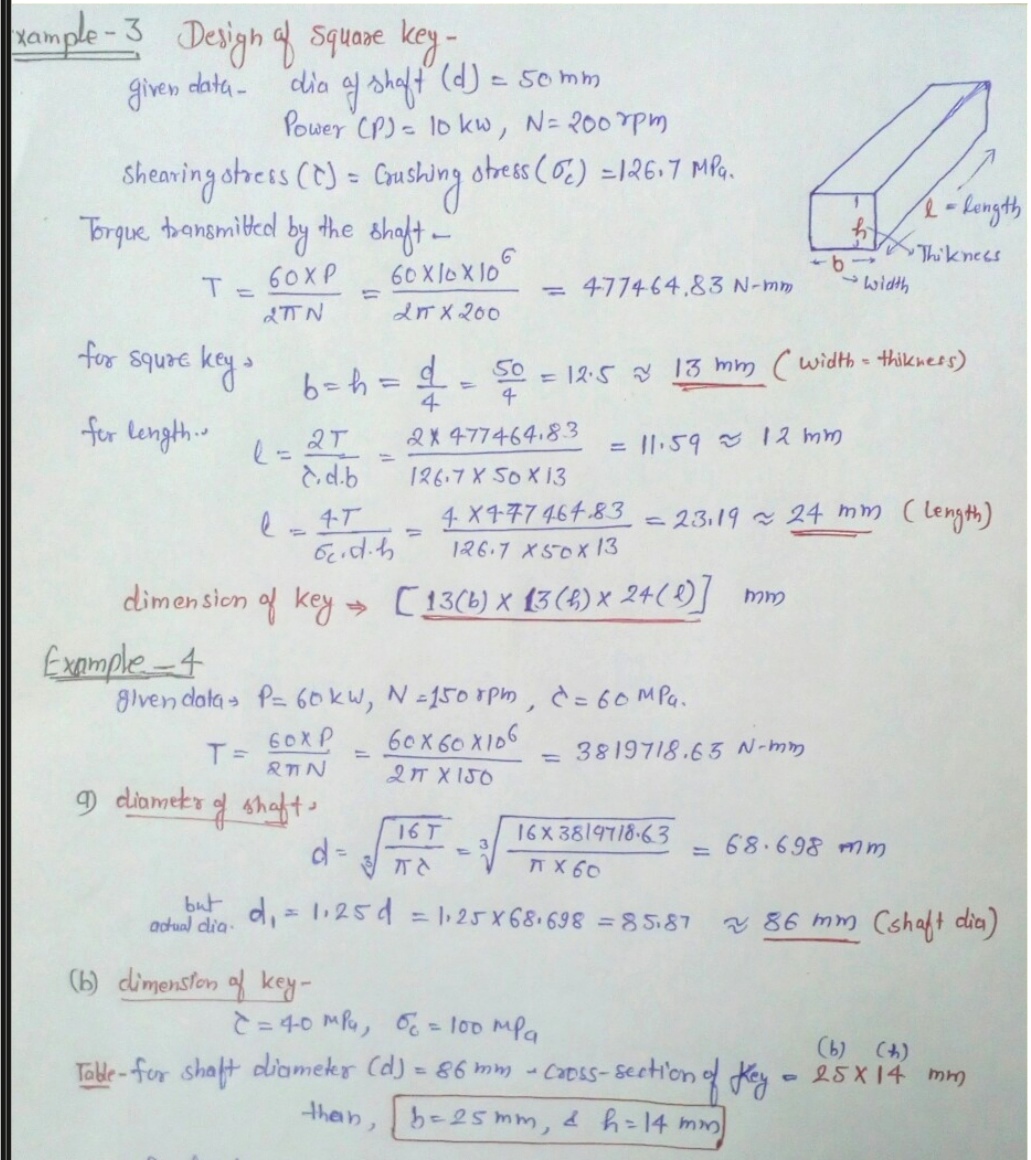 xample-3 Design of Square key-
given data- dia of shaft (d) = 50 mm
Power (P) = 10 kw, N = 200 rpm
Shearing stress (τ) = Crushing stress (σc) = 126.7 MPa.
l = length
h
Thikness
b
→ width
Torque transmitted by the shaft -
T = 60XP / 2πN = 60X10X10^6 / 2π X 200 = 477464.83 N-mm
for squre key → b = h = d/4 = 50/4 = 12.5 ≈ 13 mm ( width = thikness)
for length.. l = 2T / τ.d.b = 2X 477464.83 / 126.7 X 50 X 13 = 11.59 ≈ 12 mm
l = 4.T / σc.d.h = 4 X477464.83 / 126.7 X50 X 13 = 23.19 ≈ 24 mm ( length)
dimension of key → [ 13(b) X 13(h) X 24(l)] mm
Example - 4
given data → P = 60 kw, N = 150 rpm, τ = 60 MPa.
T = 60XP / 2πN = 60X60X10^6 / 2π X 150 = 3819718.63 N-mm
a) diameter of shaft →
d = ∛(16T / πτ) = ∛(16X3819718.63 / π X 60) = 68.698 mm
but
actual dia. d₁ = 1.25d = 1.25X68.698 = 85.87 ≈ 86 mm (shaft dia)
(b) dimension of key-
τ = 40 MPa, σc = 100 MPa
(b) (h)
Table - for shaft diameter (d) = 86 mm - cross-section of key = 25X14 mm
then, b = 25 mm, & h = 14 mm